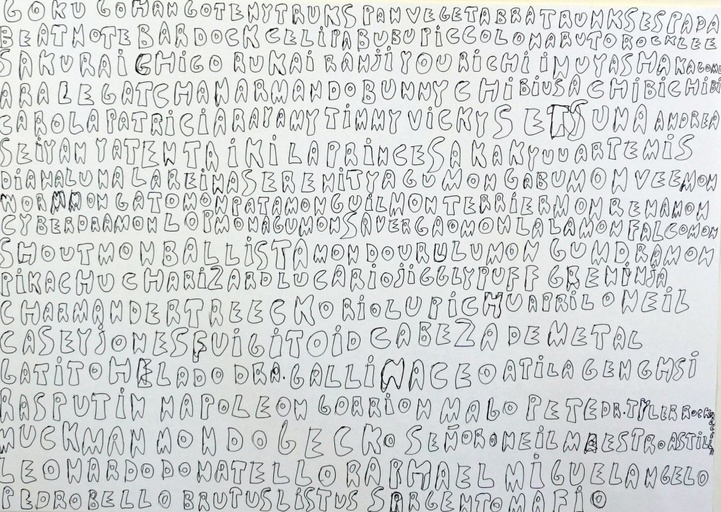 GOKU GOHAN GOTEN Y TRUKS PAN VEGETA BRA TRUNKS ESPADA
BEAT NOTE BARDOCK CELI PABUBU PICCOLO NARUTO ROCKLEE
SAKURA ICHIGO RUKAI RANJI YOURICHI INUYASHA KAGOME
ARALE GATCHAN ARMANDO BUNNY CHIBIUSA CHIBICHIBI
CAROLA PATRICIA RAYAMY TIMMY VICKY SETSUNA ANDREA
SEIYAN YATEN TAIKI LA PRINCESA KAKYUU ARTEMIS
DIANA LUNA LA REINA SERENITY AGUMON GABUMON VEEMON
WORMMON GATOMON PATAMON GUILMON TERRIERMON RENAMON
CYBERDRAMON LOPMON AGUMON SAVER GAOMON LALAMON FALCOMON
SHOUTMON BALLISTAMON DOURULUMON GUMDRAMON
PIKACHU CHARIZARD LUCARIO JIGGLYPUFF GRENINJA
CHARMANDER TREECKO RIOLU PICHU APRIL ONEIL
CASEY JONES FUIGITOID CABEZA DE METAL
GATITO HELADO DRA. GALLINACEO ATILA GENGHSI
RASPUTIN NAPOLEON GORRION MALO PETE DR. TYLER ROCK
MUCKMAN MONDO GECKO SEÑOR ONEIL MAESTRO ASTILL
LEONARDO DONATELLO RAPHAEL MIGUEL ANGELO
PEDRO BELLO BRUTUS LISTUS SARGENTO MAFIO